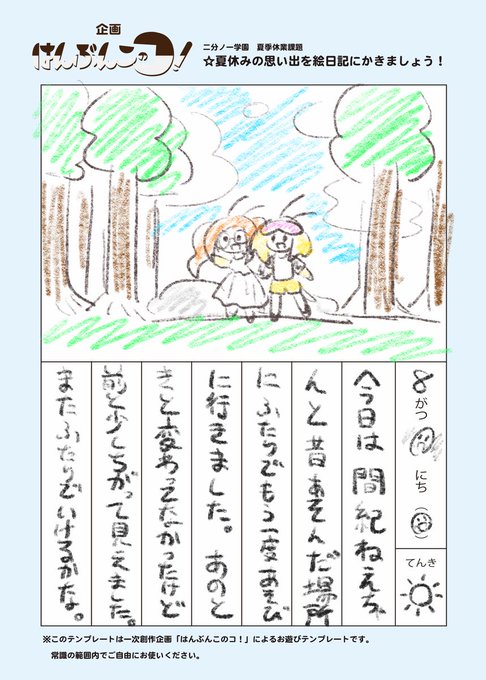 企画
はんぶんこのコ！
二分ノー学園　夏季休業課題
☆夏休みの思い出を絵日記にかきましょう！
8がつ　にち
てんき
今日は間紀ねえち
んと昔あそんだ場所
にふたりでもう一度あそび
に行きました。あのと
きと変わってなかったけど
前と少しちがって見えました。
またふたりでいけるかな。
※このテンプレートは一次創作企画「はんぶんこのコ！」によるお遊びテンプレートです。
常識の範囲内でご自由にお使いください。